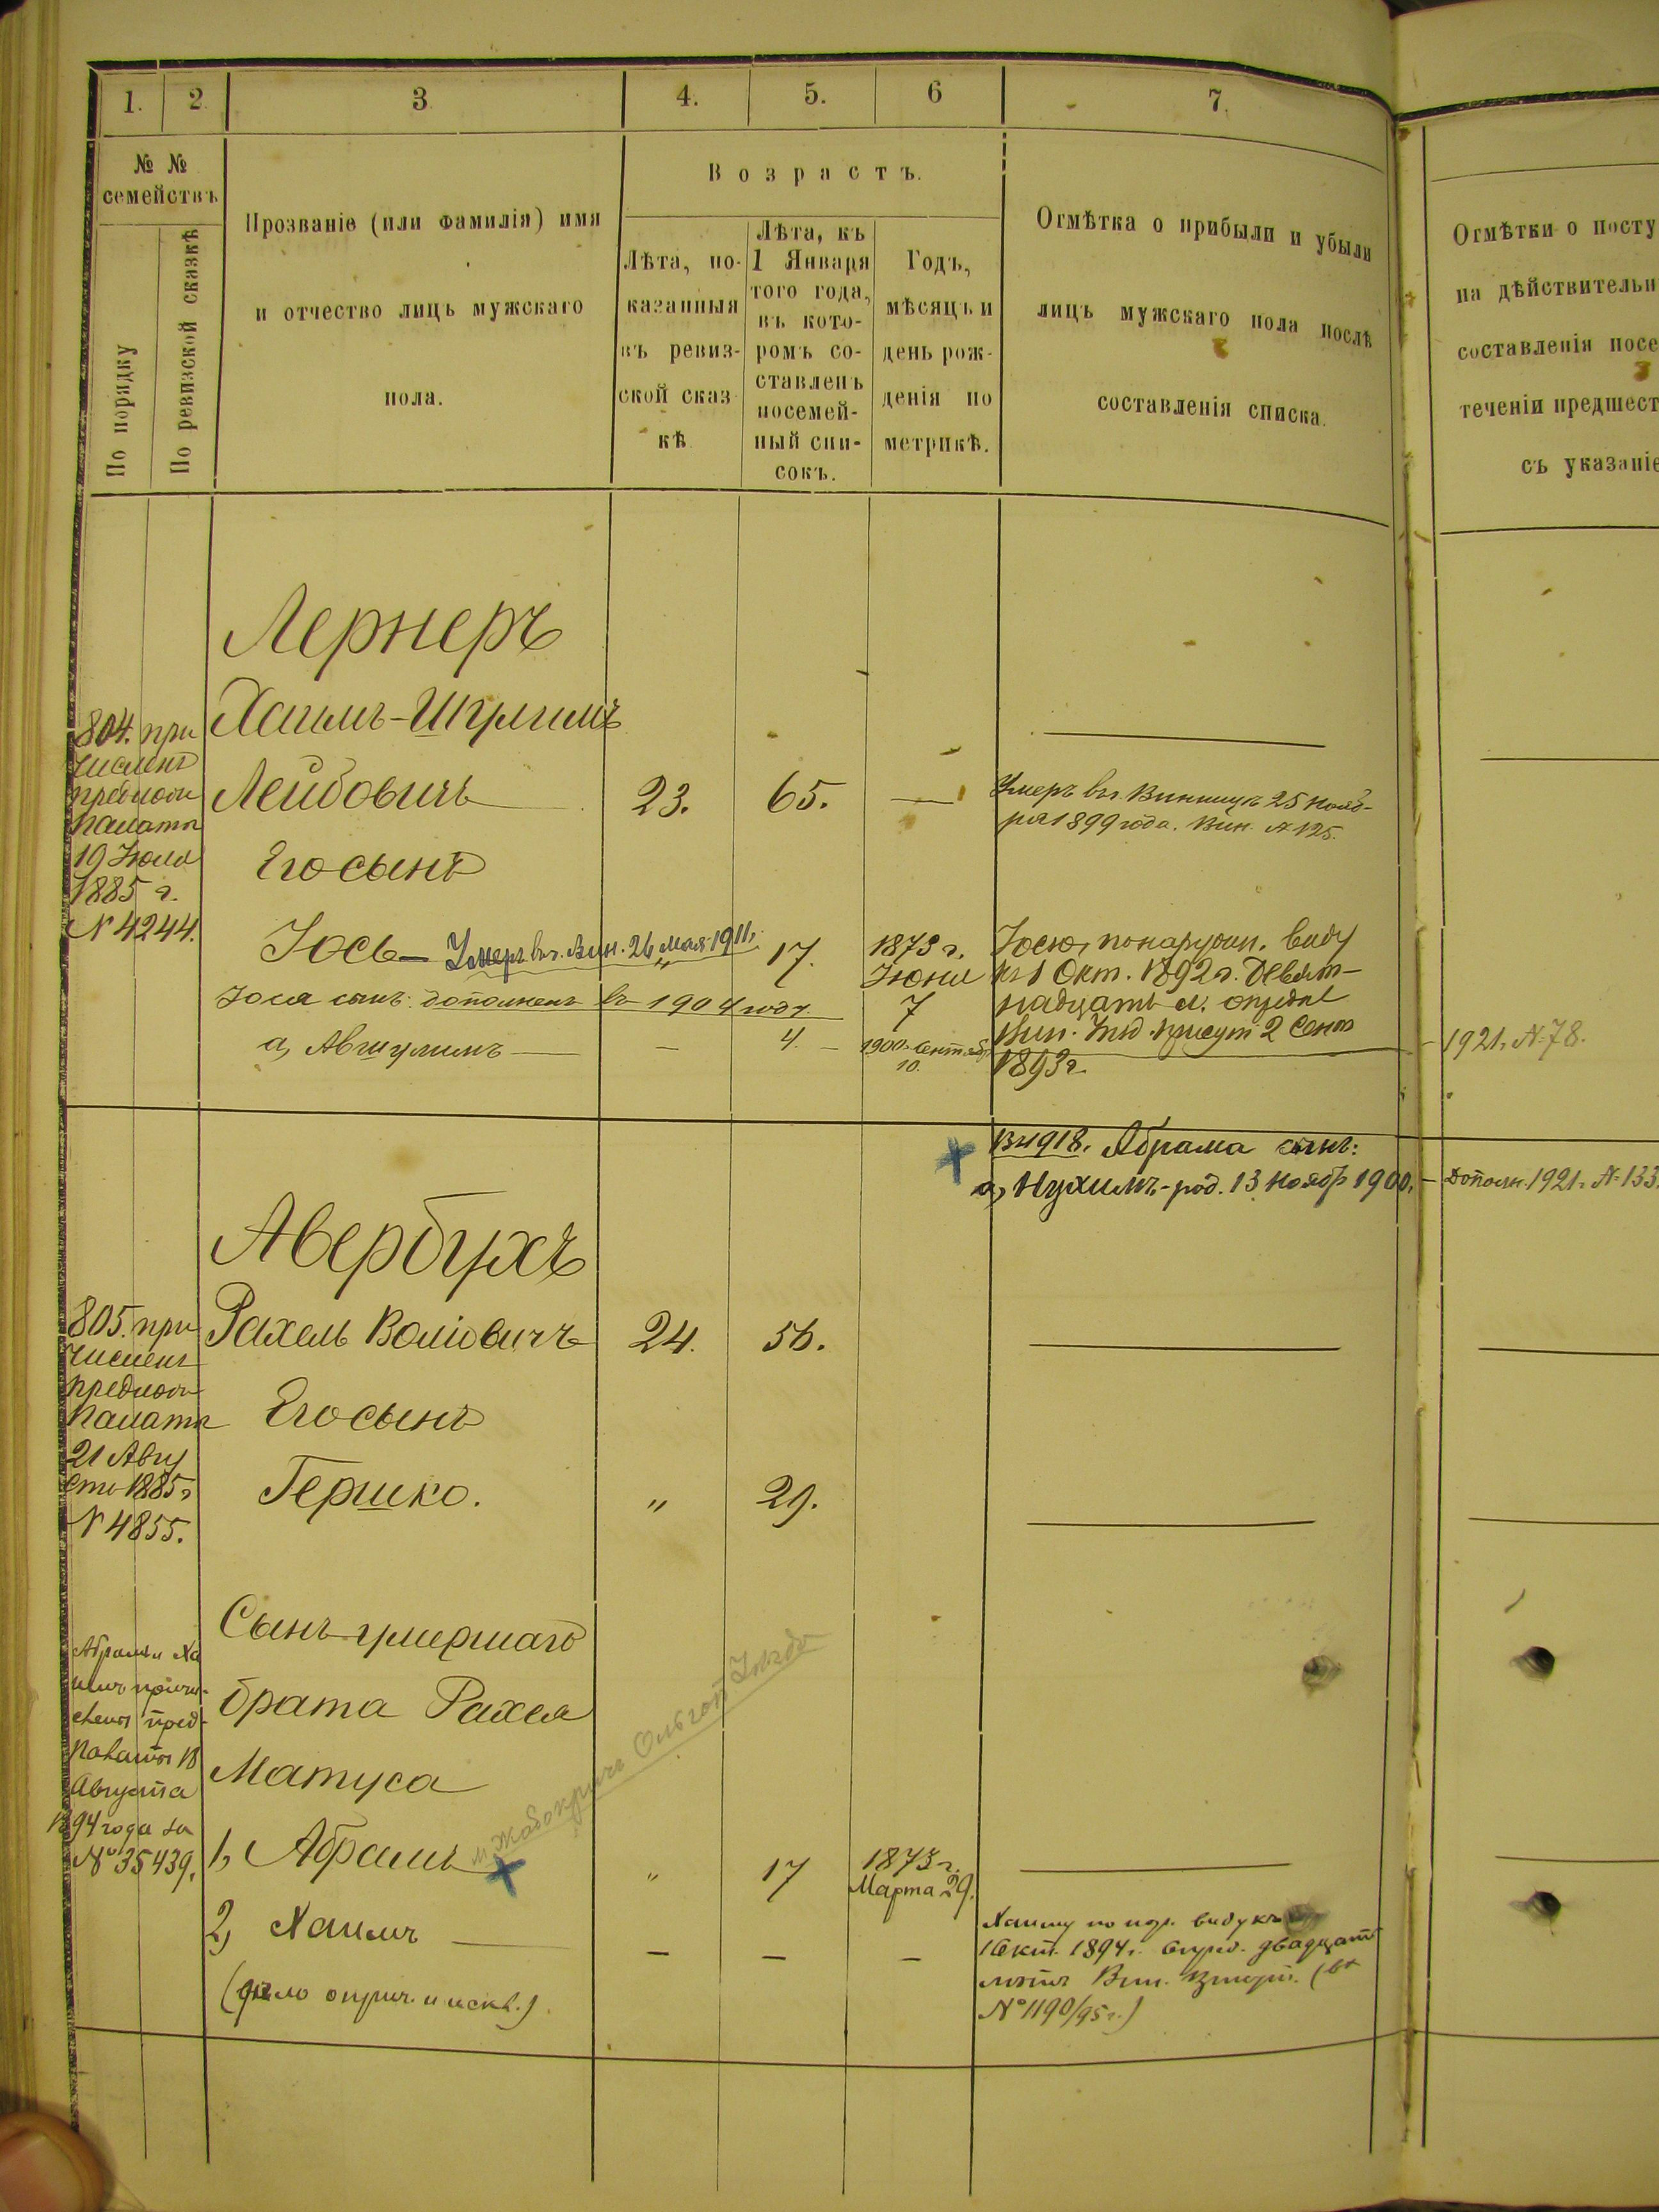 1. 2. 3. 4. 5. 6 7.
№ №
семействъ
По порядку
По ревизской сказкѣ
Прозваніе (или фамилія) имя
и отчество лицъ мужскаго
пола.
Возрастъ.
Лѣта, по-
казанныя
въ ревиз-
ской сказ-
кѣ
Лѣта, къ
1 Января
того года,
въ кото-
ромъ со-
ставленъ
посемей-
ный спи-
сокъ.
Годъ,
мѣсяцъ и
день рож-
денія по
метрикѣ.
Отмѣтка о прибыли и убыли
лицъ мужскаго пола послѣ
составленія списка.
Отмѣтки о посту
на дѣйствительн
составленія посе
теченіи предшест
съ указаніе
Лернеръ
804. при
численъ
19 Іюля
1885 г.
№ 4244.
Хаимъ-Шулимъ
Лейбовичъ 23. 65. —
Умеръ въ г. Винницѣ 25 нояб-
ря 1899 года. Вин. № 125.
Его сынъ
Іось — Умеръ въ г. Вин. 26 мая 1911 г. " 17. 1873 г.
Іюня
7
Іосю, по наружн. виду
къ 1 Окт. 1892 г. девят-
надцать л. опредѣл
Вин. присут. 2 Сент
1893 г.
Іося сынъ: дополненъ въ 1904 году.
а, Авшулимъ — — 4. — 1900 г. Сентяб.
10.
1921 г. № 78.
В 1918. Абрама сынъ:
а, Нухимъ - род. 13 Ноябр 1900. — Дополн. 1921 г. № 133.
Авербухъ
805. при
численъ
21 Авгу
ста 1885 г
№ 4855.
Рахель Волковичъ 24. 56.
Его сынъ
Гершко. " 29.
Сынъ умершаго
брата Рахеля
Матуса
Абрамъ и Ха
имъ причи-
слены пред.
Палаты 18
Августа
1894 года за
№ 35439.
м. Жабокричъ Ольгоп. Уѣзда
1, Абрамъ " 17 1873 г.
Марта 29.
2, Хаимъ — — — —
(дѣло о прич. и искл.)
Хаиму по нар. виду къ
1 Окт. 1894 г. опред. двадцать
лѣтъ Вин.
№ 1190/95 г.)